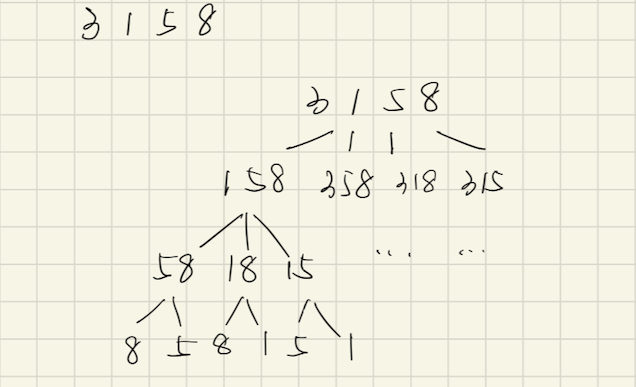 3 1 5 8
3 1 5 8
158 358 318 315
58 18 15 ... ...
8 5 8 1 5 1